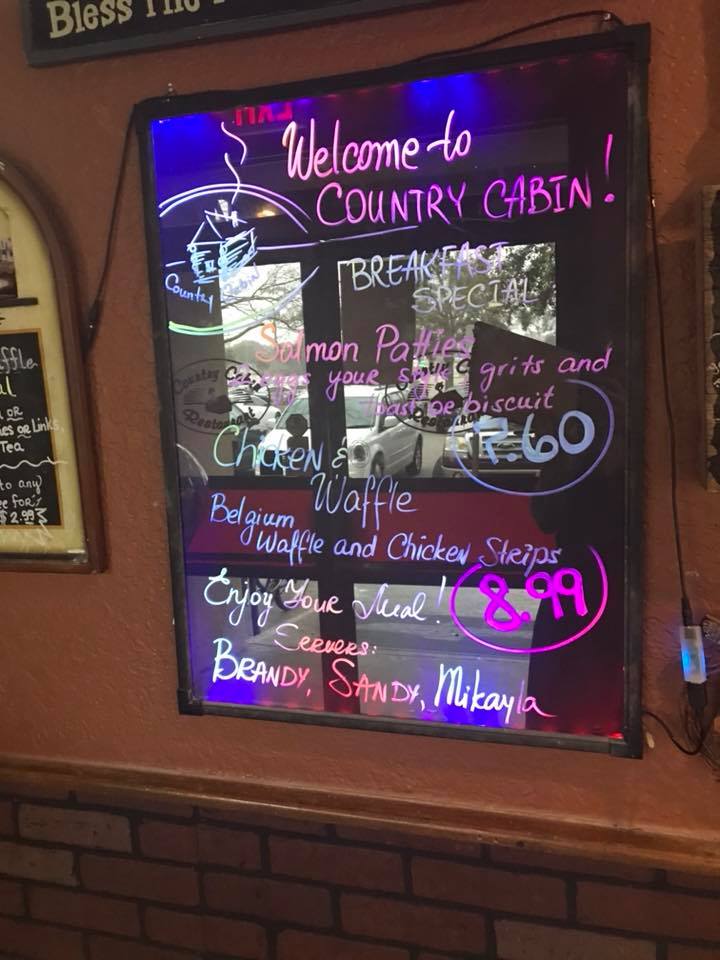 Bless The
Welcome to
COUNTRY CABIN!
Country Cabin
BREAKFAST
SPECIAL
Salmon Patties
2 eggs your style grits and
toast or biscuit
7.60
Chicken &
Waffle
Belgium
Waffle and Chicken Strips
8.99
Enjoy Your Meal!
Servers:
BRANDY, SANDY, Mikayla
Country Cabin
Restaurant
OR
or Links
Tea
to any
for
$2.99